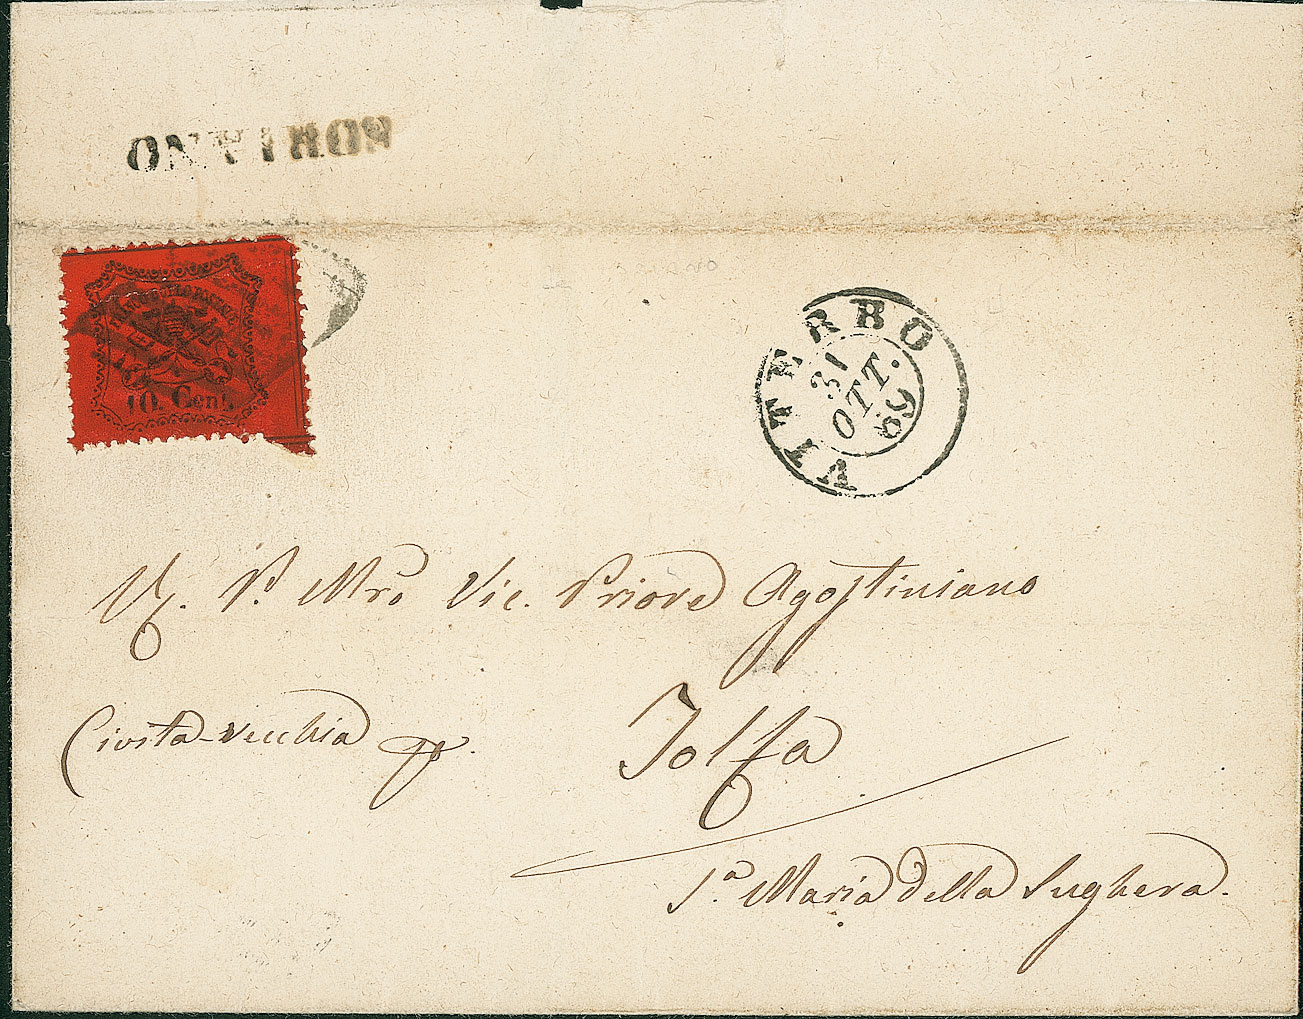 SORIANO
10. Cent
VITERBO
31
OTT.
69
P. Mro Vic. Priore Agostiniano
Civita-Vecchia p.
Tolfa
S.a Maria della Sughera.